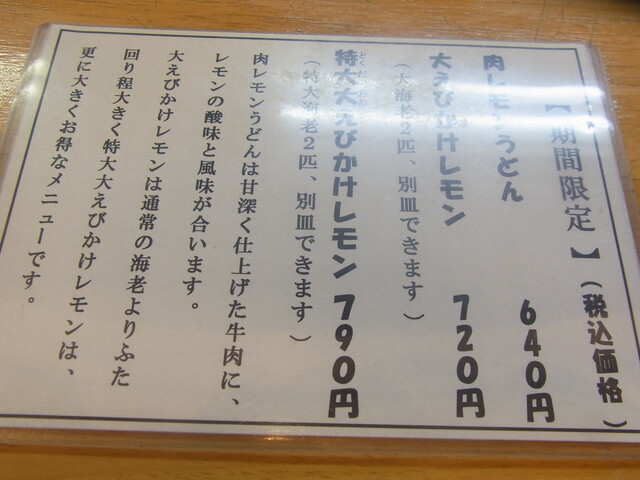 【期間限定】(税込価格)
肉レモンうどん 640円
大えびかけレモン 720円
(大海老2匹、別皿できます)
特大大えびかけレモン 790円
(特大海老2匹、別皿できます)
肉レモンうどんは甘深く仕上げた牛肉に、
レモンの酸味と風味が合います。
大えびかけレモンは通常の海老よりふた
回り程大きく特大大えびかけレモンは、
更に大きくお得なメニューです。